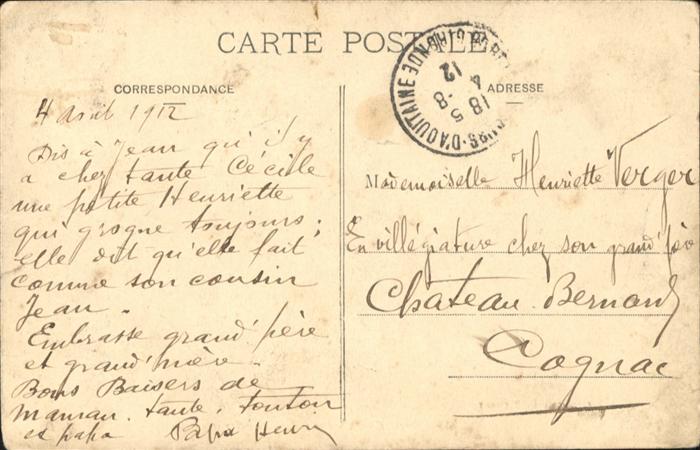 CARTE POSTALE
CORRESPONDANCE
4 avril 1912
Dis à Jean qu'il y
a chez tante Cécile
une petite Henriette
qui grogne toujours ;
elle dit qu'elle fait
comme son cousin
Jean.
Embrasse grand'père
et grand'mère.
Bons Baisers de
maman, tante, tonton
et papa Papa Henri
ADRESSE
Mademoiselle Henriette Verger
En villégiature chez son grand'père
Chateau. Bernard
Cognac
COURS-D'AQUITAINE GIRONDE
18 5
8 - 4
12